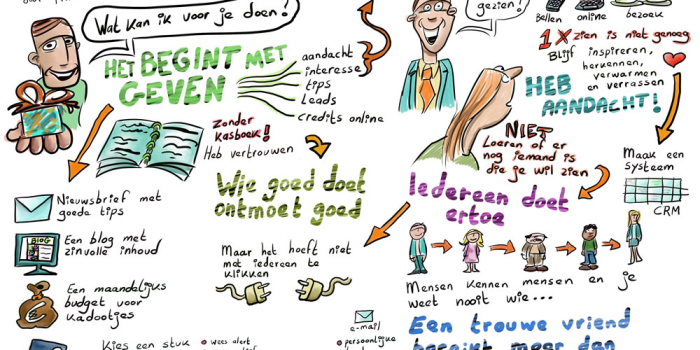 Wat kan ik voor je doen!
HET BEGINT MET
GEVEN
aandacht
interesse
tips
Leads
credits online
zonder
kasboek!
Heb vertrouwen
Wie goed doet
ontmoet goed
Nieuwsbrief met
goede tips
BLOG
Een blog met
zinvolle inhoud
Een maandelijks
budget voor
kadootjes
Kies een stuk
wees alert
Maar het hoeft niet
met iedereen te
klikken
e-mail
persoonlijke
gezien!
Bellen online bezoek
1X zien is niet genoeg
Blijf inspireren,
herkennen,
verwarmen
en verrassen
HEB
AANDACHT!
NIET
Loeren of er
nog iemand is
die je wil zien
Maak een
systeem
CRM
Iedereen doet
ertoe
Mensen kennen mensen en je
weet nooit wie...
Een trouwe vriend
begint meer dan